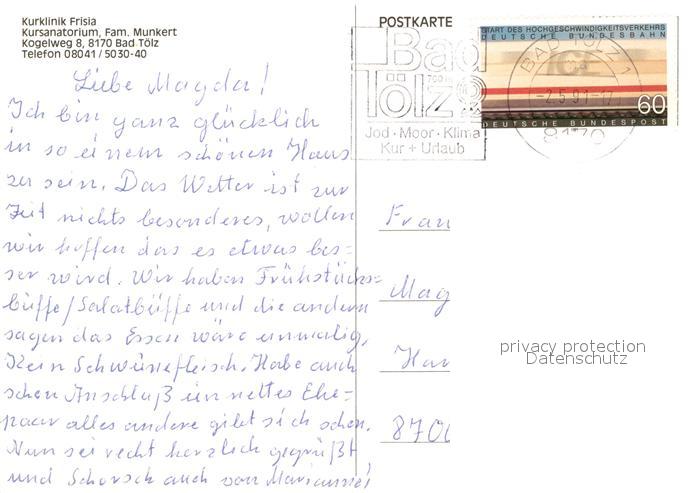 Kurklinik Frisia
Kursanatorium, Fam. Munkert
Kogelweg 8, 8170 Bad Tölz
Telefon 08041/5030-40
POSTKARTE
Bad
Tölz
Jod · Moor · Klima
Kur + Urlaub
START DES HOCHGESCHWINDIGKEITSVERKEHRS
DEUTSCHE BUNDESBAHN
ICE
60
DEUTSCHE BUNDESPOST
BAD TÖLZ 1
-2.5.91-17
8170
Liebe Magda!
Ich bin ganz glücklich
in so einem schönen Haus
zu sein. Das Wetter ist zur
Zeit nichts besonderes, wollen
wir hoffen das es etwas bes=
ser wird. Wir haben Frühstücks=
büffe/Salatbüffe und die andern
sagen das Essen wäre einmalig,
Kein Schweinefleisch. Habe auch
schon Anschluß ein nettes Ehe=
paar alles andere gibt sich schon.
Nun sei recht herzlich gegrüßt
und Schorsch auch von Marianne!
Frau
Mag
Har
8700
privacy protection
Datenschutz